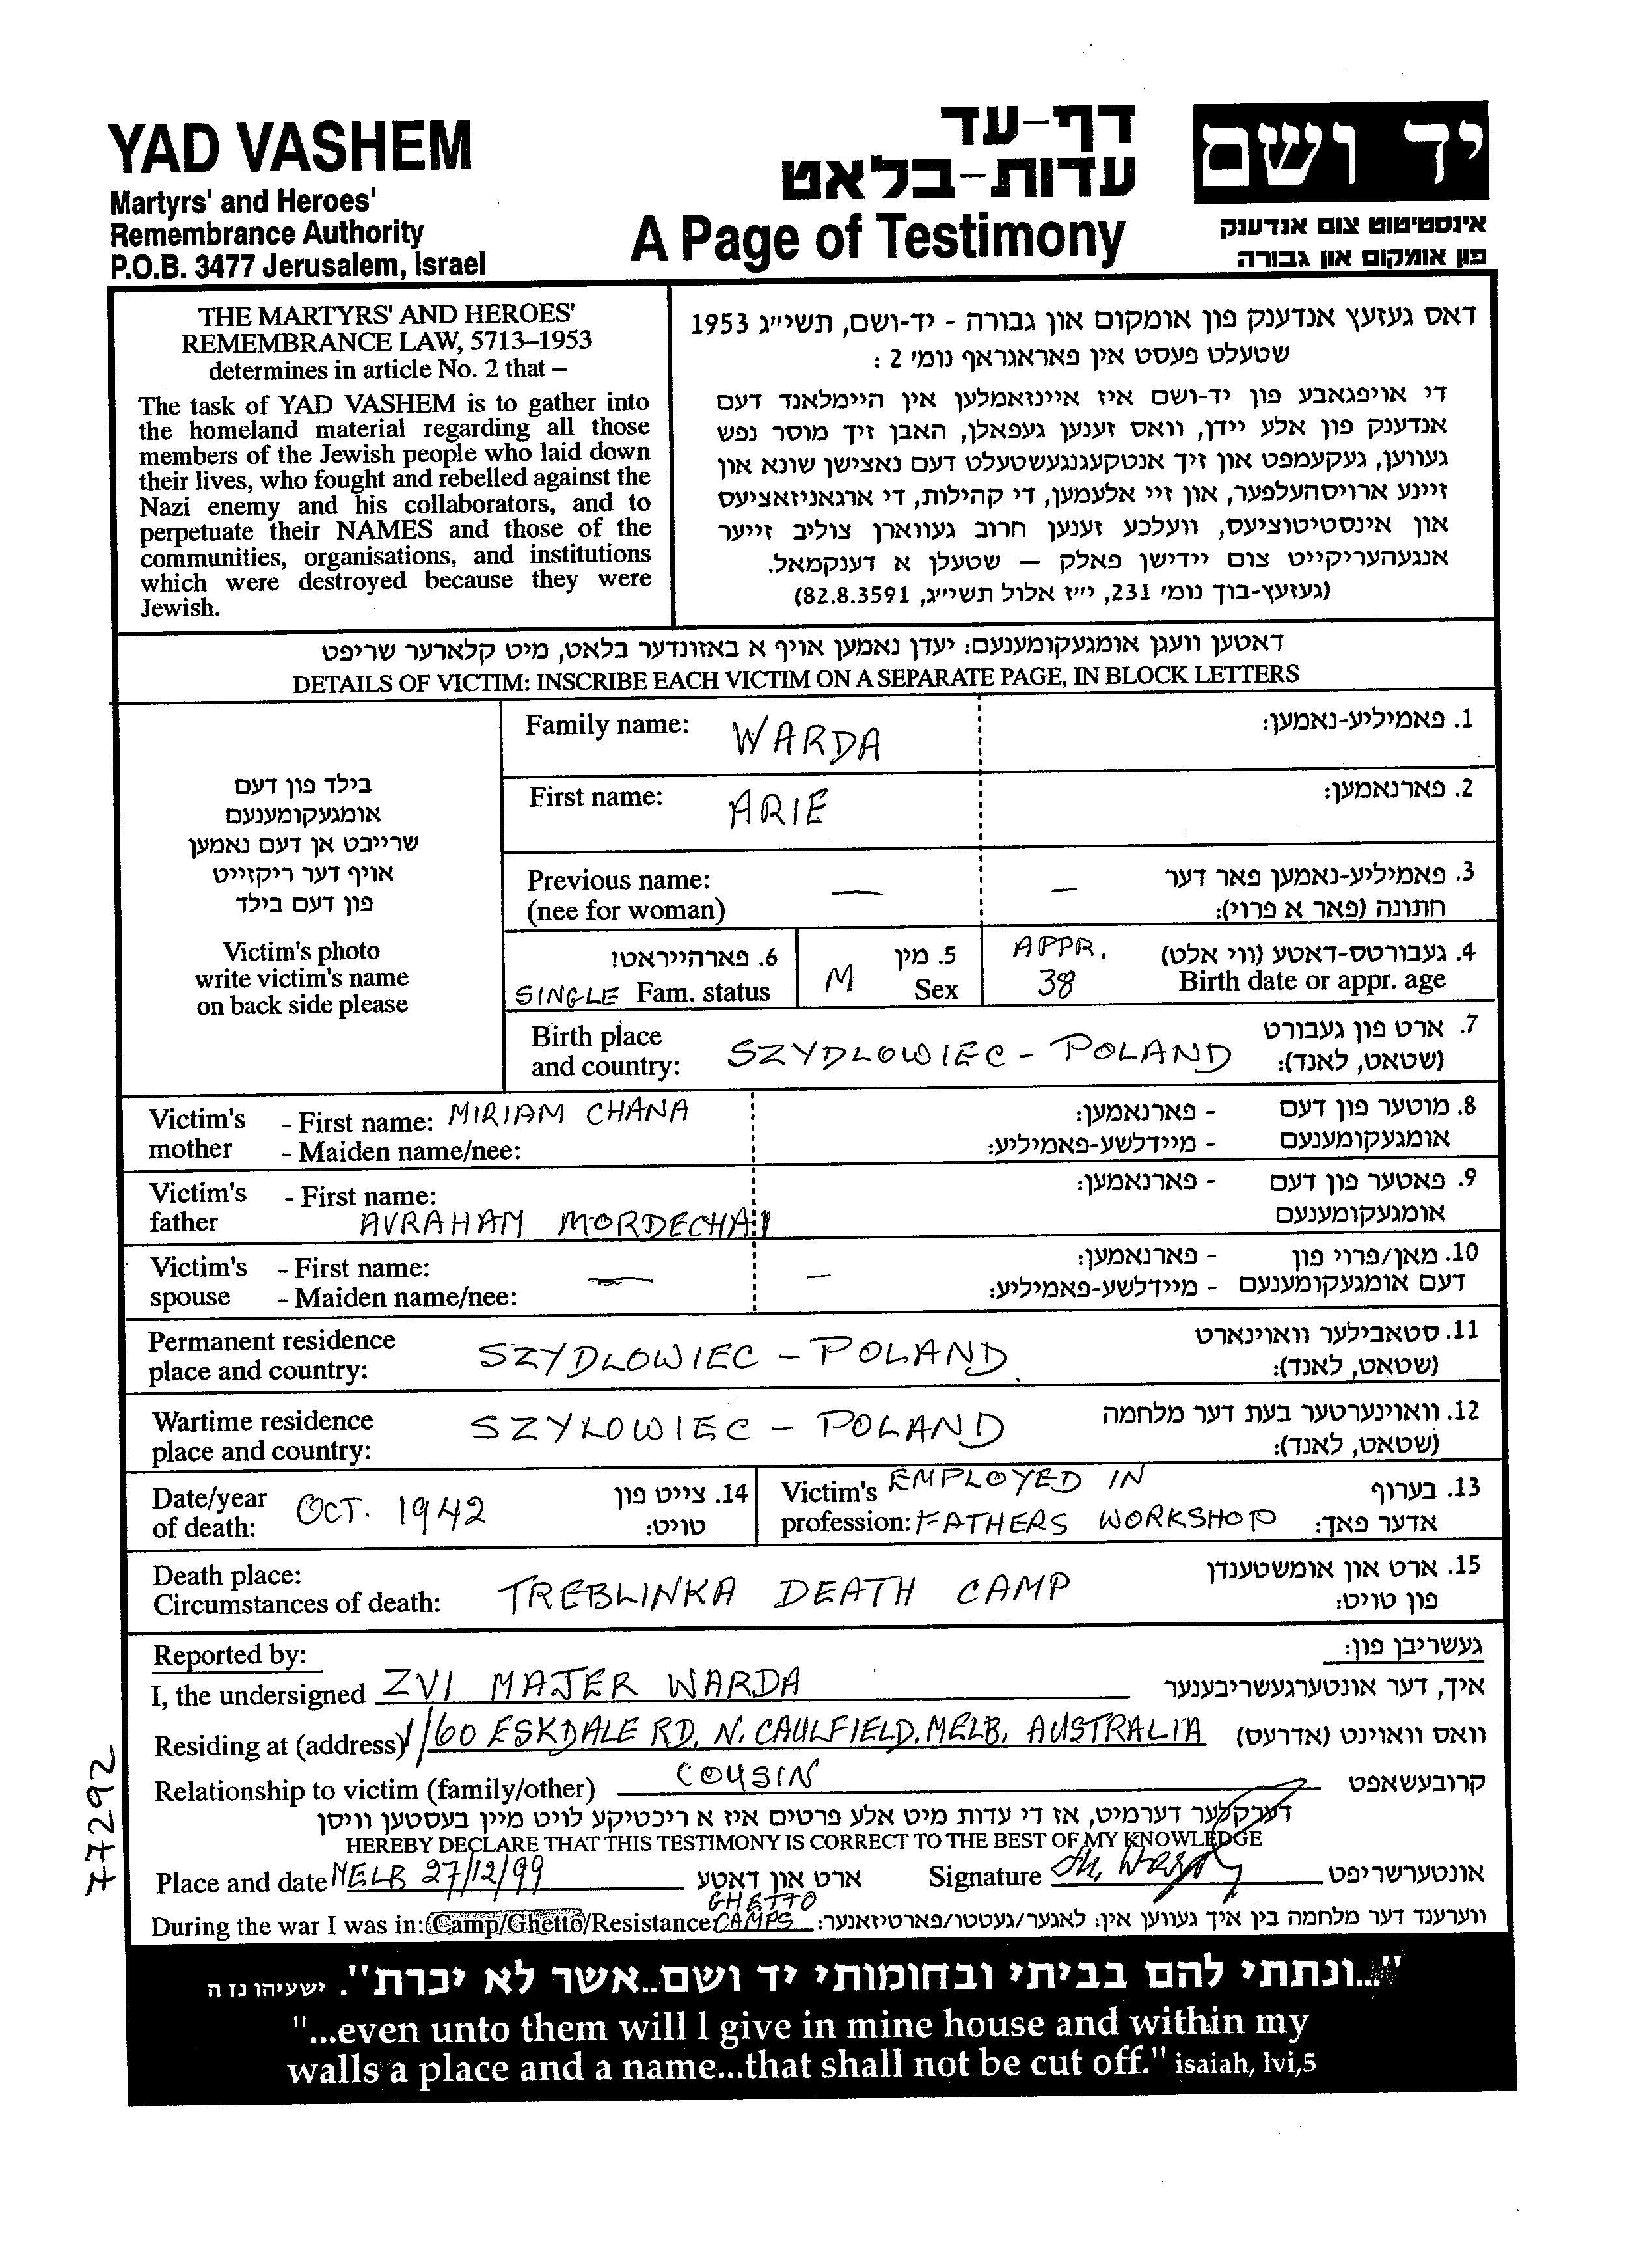 YAD VASHEM
Martyrs' and Heroes'
Remembrance Authority
P.O.B. 3477 Jerusalem, Israel
דף-עד
עדות-בלאט
A Page of Testimony
יד ושם
אינסטיטוט צום אנדענק
פון אומקום און גבורה
THE MARTYRS' AND HEROES'
REMEMBRANCE LAW, 5713–1953
determines in article No. 2 that –
The task of YAD VASHEM is to gather into
the homeland material regarding all those
members of the Jewish people who laid down
their lives, who fought and rebelled against the
Nazi enemy and his collaborators, and to
perpetuate their NAMES and those of the
communities, organisations, and institutions
which were destroyed because they were
Jewish.
דאס געזעץ אנדענק פון אומקום און גבורה - יד-ושם, תשי״ג 1953
שטעלט פעסט אין פאראגראף נומ׳ 2 :
די אויפגאבע פון יד-ושם איז איינזאמלען אין היימלאנד דעם
אנדענק פון אלע יידן, וואס זענען געפאלן, האבן זיך מוסר נפש
געווען, געקעמפט און זיך אנטקעגנגעשטעלט דעם נאצישן שונא און
זיינע ארויסהעלפער, און זיי אלעמען, די קהילות, די ארגאניזאציעס
און אינסטיטוציעס, וועלכע זענען חרוב געווארן צוליב זייער
אנגעהעריקייט צום יידישן פאלק — שטעלן א דענקמאל.
(געזעץ-בוך נומ׳ 231, י״ז אלול תשי״ג, 82.8.3591)
דאטען וועגן אומגעקומענעם: יעדן נאמען אויף א באזונדער בלאט, מיט קלארער שריפט
DETAILS OF VICTIM: INSCRIBE EACH VICTIM ON A SEPARATE PAGE, IN BLOCK LETTERS
בילד פון דעם
אומגעקומענעם
שרייבט אן דעם נאמען
אויף דער ריקזייט
פון דעם בילד
Victim's photo
write victim's name
on back side please
Family name: WARDA 1. פאמיליע-נאמען:
First name: ARIE 2. פארנאמען:
Previous name: — — 3. פאמיליע-נאמען פאר דער
(nee for woman) חתונה (פאר א פרוי):
6. פארהייראט? 5. מין APPR. 4. געבורטס-דאטע (ווי אלט)
SINGLE Fam. status M Sex 38 Birth date or appr. age
Birth place 7. ארט פון געבורט
and country: SZYDLOWIEC - POLAND (שטאט, לאנד):
Victim's - First name: MIRIAM CHANA - פארנאמען: 8. מוטער פון דעם
mother - Maiden name/nee: - מיידלשע-פאמיליע: אומגעקומענעם
Victim's - First name: - פארנאמען: 9. פאטער פון דעם
father AVRAHAM MORDECHAI אומגעקומענעם
Victim's - First name: — — - פארנאמען: 10. מאן/פרוי פון
spouse - Maiden name/nee: - מיידלשע-פאמיליע: דעם אומגעקומענעם
Permanent residence 11. סטאבילער וואוינארט
place and country: SZYDLOWIEC - POLAND (שטאט, לאנד):
Wartime residence 12. וואוינערטער בעת דער מלחמה
place and country: SZYLOWIEC - POLAND (שטאט, לאנד):
Date/year OCT. 1942 14. צייט פון Victim's EMPLOYED IN 13. בערוף
of death: טויט: profession: FATHERS WORKSHOP אדער פאך:
Death place: 15. ארט און אומשטענדן
Circumstances of death: TREBLINKA DEATH CAMP פון טויט:
Reported by: געשריבן פון:
I, the undersigned ZVI MAJER WARDA איך, דער אונטערגעשריבענער
Residing at (address) 1/60 ESKDALE RD, N. CAULFIELD, MELB, AUSTRALIA וואס וואוינט (אדרעס)
Relationship to victim (family/other) COUSIN קרובעשאפט
דערקלער דערמיט, אז די עדות מיט אלע פרטים איז א ריכטיקע לויט מיין בעסטען וויסן
HEREBY DECLARE THAT THIS TESTIMONY IS CORRECT TO THE BEST OF MY KNOWLEDGE
Place and date MELB 27/12/99 ארט און דאטע Signature אונטערשריפט
GHETTO
During the war I was in: Camp/Ghetto/Resistance: CAMPS ווערענד דער מלחמה בין איך געווען אין: לאגער/געטטו/פארטיזאנער:
77292
"...ונתתי להם בביתי ובחומותי יד ושם..אשר לא יכרת". ישעיהו נז ה
"...even unto them will I give in mine house and within my
walls a place and a name...that shall not be cut off." isaiah, lvi,5